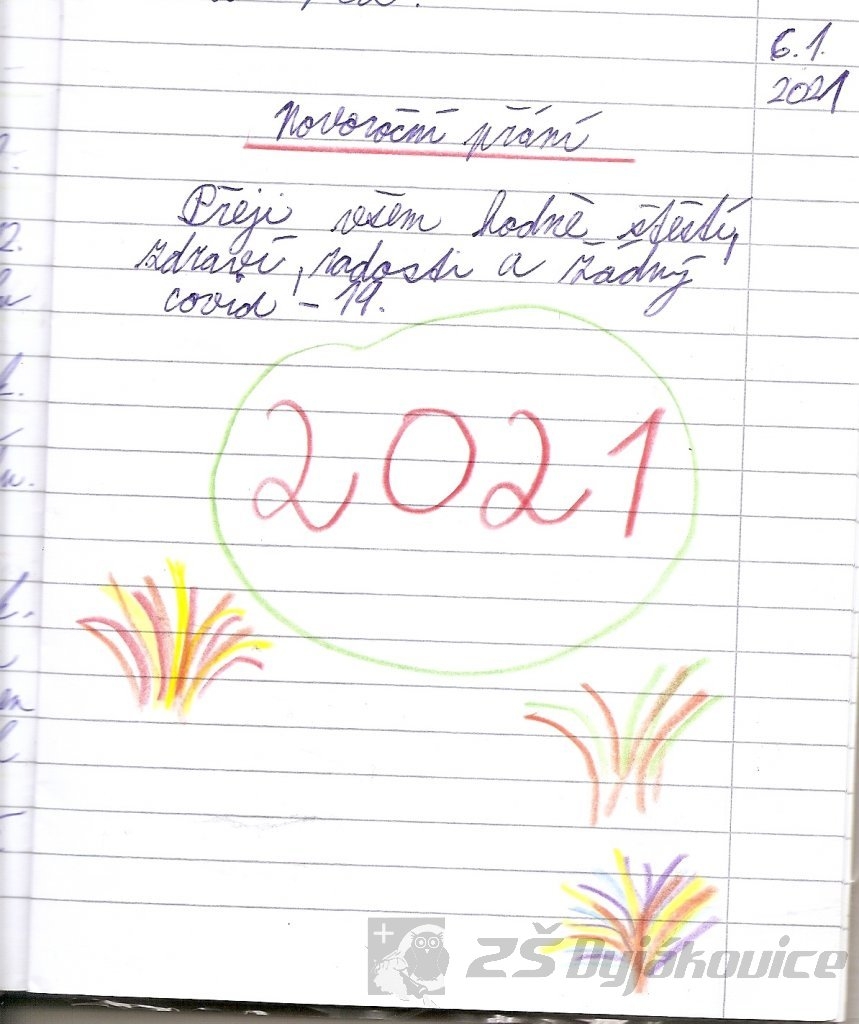 6.1.
2021
Novoroční přání
Přeji všem hodně štěstí,
zdraví, radosti a žádný
covid - 19.
2021
ZŠ Dyjákovice